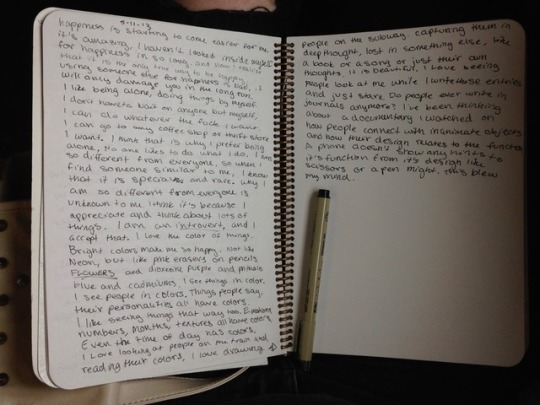 5-11-13
happiness is starting to come easier for me,
it's amazing. I haven't looked inside myself
for happiness in so long, and now I realize
that it is the only true way to be happy.
using someone else for happiness is bad, it
will only damage you in the long run.
I like being alone, doing things by myself.
I don't have to wait on anyone but myself,
I can do whatever the fuck I want.
I can go to any coffee shop or thrift store
I want. I think that is why I prefer being
alone, No one likes to do what I do, I am
so different from everyone, so when I
find someone similar to me, I know
that it is special and rare. Why I
am so different from everyone is
unknown to me, I think it's because I
appreciate and think about lots of
things. I am an introvert, and I
accept that. I love the color of things.
Bright colors make me so happy. Not like
Neon, but like pink erasers on pencils
FLOWERS and dioxazine purple and
blue and cadmiums. I see things in color.
I see people in colors, Things people say,
their personalities all have colors.
I like seeing things that way too. Emotions
numbers, months, textures all have colors
Even the time of day has colors,
I Love looking at people on the train and
reading their colors, I love drawing
people on the subway. capturing them in
deep thought, lost in something else, like
a book or a song or just their own
thoughts. It is beautiful. I love seeing
people look at me while I write these entries
and just stare. Do people ever write in
journals anymore? I've been thinking
about a documentary I watched on
how people connect with inanimate objects
and how their design relates to the function
A phone doesn't show any hints to
it's function from it's design like
scissors or a pen might. This blew
my mind.